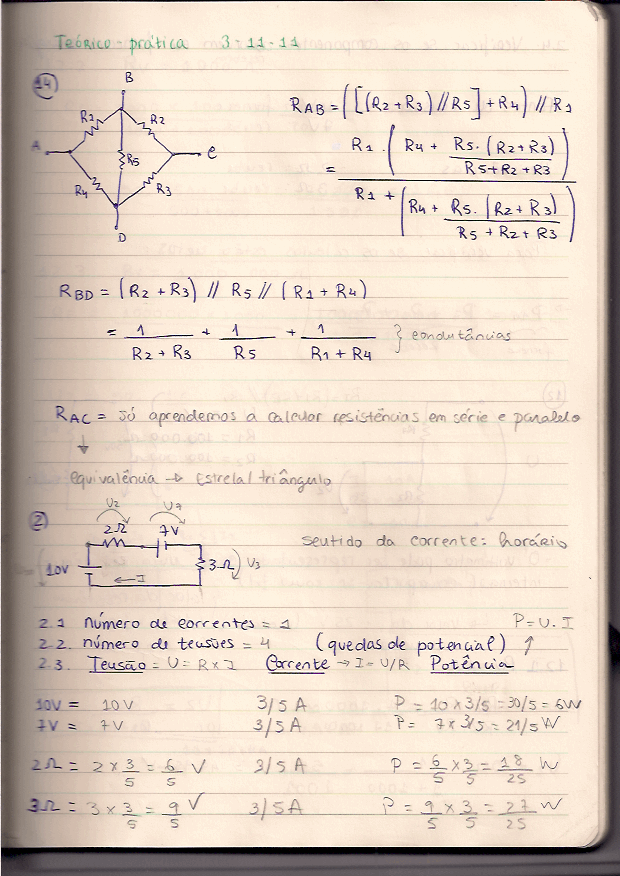 Teórico prática 3-11-11
14
B
R1
R2
A
R5
C
R4
R3
D
RAB = ([(R2+R3)//R5]+R4)//R1
= R1 . (R4 + R5.(R2+R3) / R5+R2+R3) / R1 + (R4 + R5.(R2+R3) / R5+R2+R3)
RBD = (R2+R3) // R5 // (R1+R4)
= 1/R2+R3 + 1/R5 + 1/R1+R4 } condutâncias
RAC = já aprendemos a calcular resistências em série e paralelo
equivalência → Estrela/triângulo
2
U2
U7
2Ω
7V
10V
3Ω
U3
← I
sentido da corrente: horário
2.1 número de correntes = 1 P=U.I
2.2. número de tensões = 4 (quedas de potencial) ↑
2.3. Tensão = U = R×I Corrente → I=U/R Potência
10V = 10V 3/5 A P = 10×3/5 = 30/5 = 6W
7V = 7V 3/5A P= 7×3/5 = 21/5 W
2Ω = 2×3/5 = 6/5 V 3/5 A P = 6/5 × 3/5 = 18/25 W
3Ω = 3×3/5 = 9/5 V 3/5A P = 9/5 × 3/5 = 27/25 W